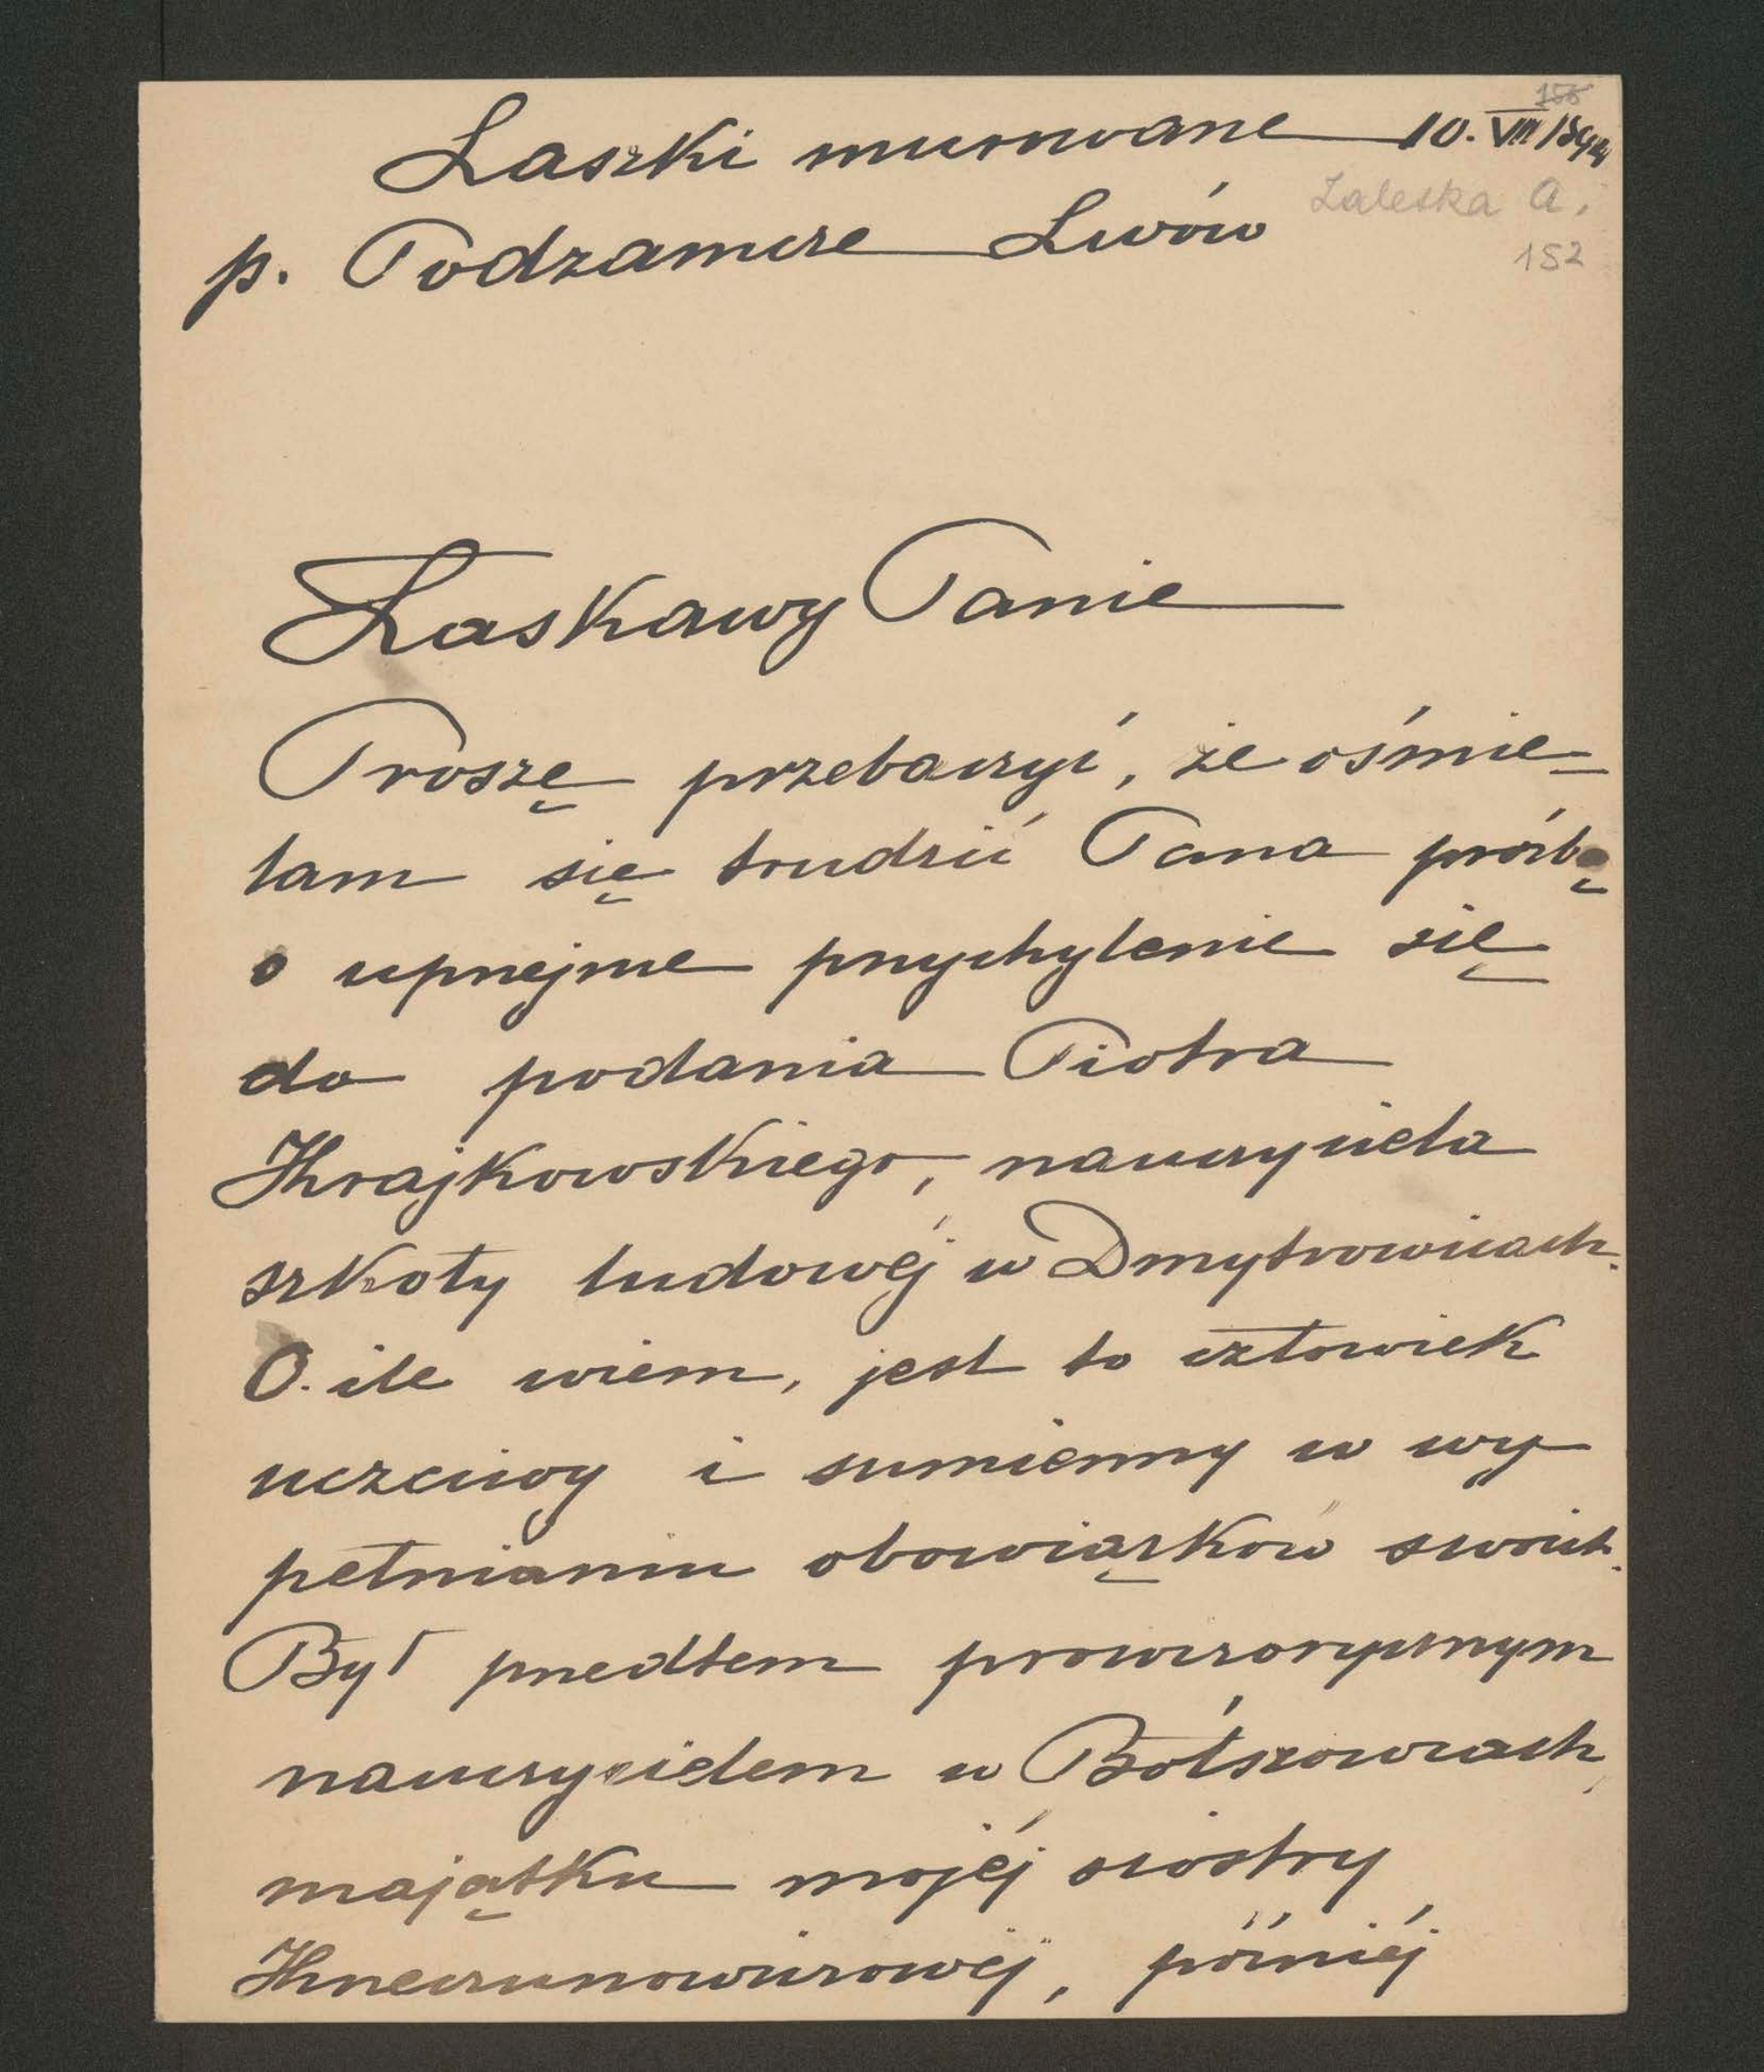 155
Laszki murowane 10. VIII 1894
Zaleska A.
p. Podzamcze Lwów
152
Łaskawy Panie
Proszę przebaczyć, że ośmie-
lam się trudzić Pana prośbą
o uprzejme przychylenie się
do podania Piotra
Krajkowskiego, nauczyciela
szkoły ludowéj w Dmytrowicach.
O ile wiem, jest to człowiek
uczciwy i sumienny w wy
pełnianiu obowiązków swoich.
Był przedtem prowizorycznym
nauczycielem w Bołszowcach,
majątku mojéj siostry
Krzeczunowiczowéj, późniéj